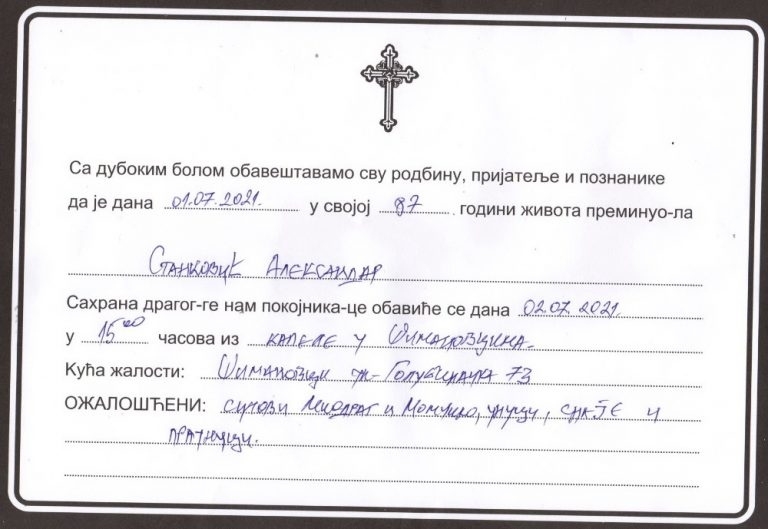 Са дубоким болом обавештавамо сву родбину, пријатеље и познанике
да је дана 01.07.2021. у својој 87 години живота преминуо-ла
Станковић Александар
Сахрана драгог-ге нам покојника-це обавиће се дана 02.07.2021.
у 15⁰⁰ часова из капеле у Шимановцима.
Кућа жалости: Шимановци 73
ОЖАЛОШЋЕНИ: синови Миодраг и Момчило, унуци, снаје и
праунуци.